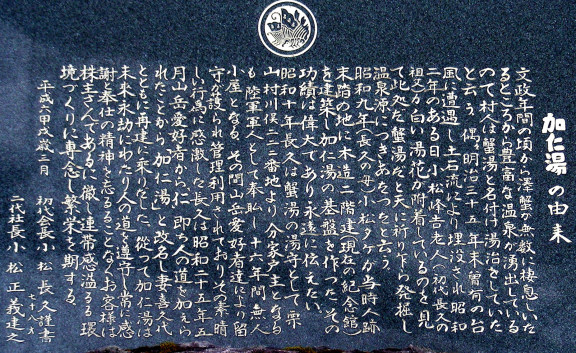 加仁湯の由来
文政年間の頃から澤蟹が無数に棲息していた
るところから豊富な温泉が湧出している
ので村人は蟹湯と名付け湯治をしていた
と云う 偶明治三十五年未曽有の台
風に遭遇し土石流により埋没され昭和
二年のある日小松峰吉老人(初代長久の
祖父)が白い湯花が附着しているのを見
て此処だ蟹湯だと天に祈り乍ら発掘し
温泉源につきあたったと云う
昭和九年(長久の母)小松タケが当時人跡
未踏の地に木造二階建(現在の紀念館)
を建築し加仁湯の基盤を作った その
功績は偉大であり永遠に伝えたい
昭和十年長久は蟹湯の湯守として栗
山村川俣二二番地より分家戸主となる
も陸軍軍人として奉职し十六年間無人
小屋となる その間山岳愛好者達により留
守な護られ管理利用されておりその素晴
しい行為に感激した長久は昭和二十五年五
月山岳愛好者から仁 即ち人の道を加えら
れたことから 加仁湯 と改名し妻喜久代
とともに再建に乗りだした 従って加仁湯は
未来永劫にわたり人の道を遵守し常に感
謝と奉仕の精神を忘るることなくお客様は
株主さんであるに徹し連帯感溢るる環
境づくりに専念し繁栄を期する
平成六甲戌歳三月
初代会長 小松長久 謹書
七十八才
二代社長 小松正義 建之